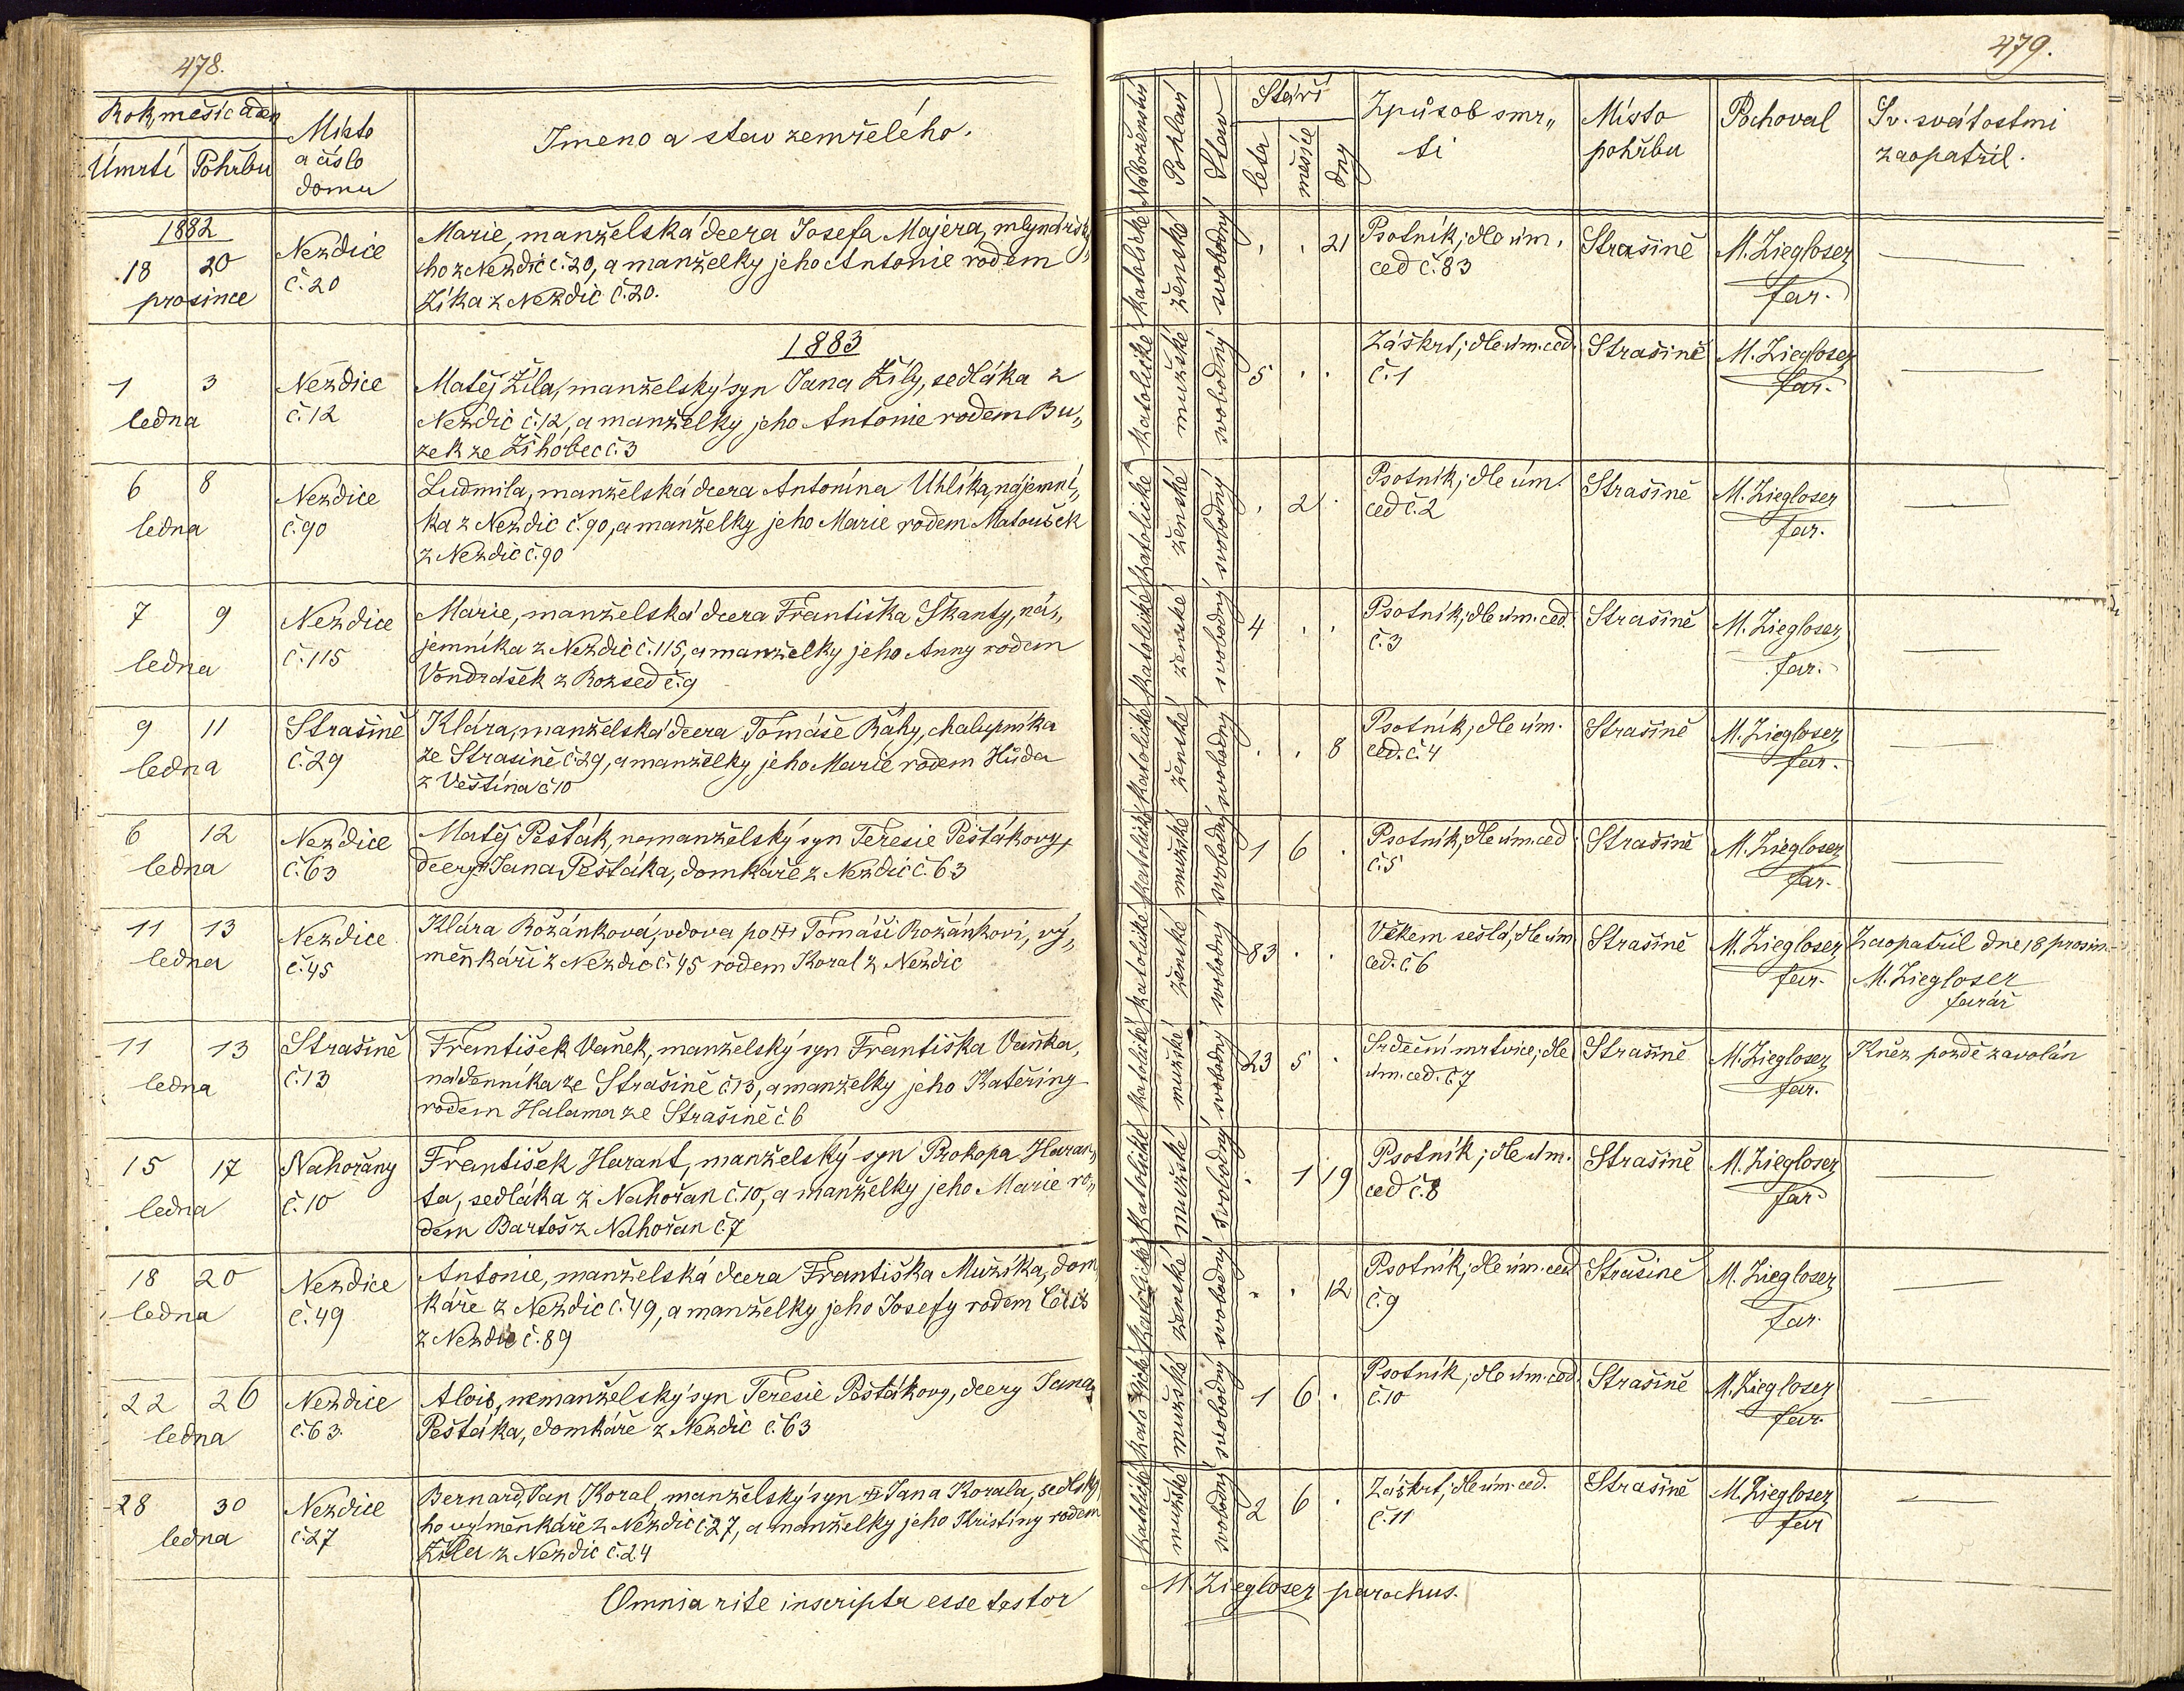 478.
Rok, měsíc a den
Úmrtí
Pohřbu
Místo
a číslo
domu
Jmeno a stav zemřelého.
1882
18 20
prosince
Nezdice
č. 20
Marie, manželská dcera Josefa Majera, mlynářské„
ho z Nezdic č. 20, a manželky jeho Antonie rodem
Zíka z Nezdic č. 20.
1883
1 3
ledna
Nezdice
č. 12
Matěj Žíla, manželský syn Jana Žíly, sedláka z
Nezdic č. 12, a manželky jeho Antonie rodem Bu„
zek ze Žihobec č. 3
6 8
ledna
Nezdice
č. 90
Ludmila, manželská dcera Antonína Uhlíka, nájemní„
ka z Nezdic č. 90, a manželky jeho Marie rodem Matoušek
z Nezdic č. 90
7 9
ledna
Nezdice
č. 115
Marie, manželská dcera Františka Skanty, ná„
jemníka z Nezdic č. 115, a manželky jeho Anny rodem
Vondrášek z Rozsed č. 9
9 11
ledna
Strašině
č. 29
Klára, manželská dcera Tomáše Báhy, chalupníka
ze Strašině č. 29, a manželky jeho Marie rodem Hůda
z Věštína č. 10
6 12
ledna
Nezdice
č. 63
Matěj Pešták, nemanželský syn Teresie Peštákovy,
dcery Jana Peštáka, domkáře z Nezdic č. 63
11 13
ledna
Nezdice
č. 45
Klára Rožánková, vdova po Tomáši Rožánkovi, vý„
měnkáři z Nezdic č. 45 rodem Koral z Nezdic
11 13
ledna
Strašině
č. 13
František Vaněk, manželský syn Františka Vaňka,
nádenníka ze Strašině č. 13, a manželky jeho Kateřiny
rodem Halama ze Strašině č. 6
15 17
ledna
Nahořany
č. 10
František Harant, manželský syn Prokopa Haran„
ta, sedláka z Nahořan č. 10, a manželky jeho Marie ro„
dem Bartoš z Nahořan č. 7
18 20
ledna
Nezdice
č. 49
Antonie, manželská dcera Františka Mužíka, dom„
káře z Nezdic č. 49, a manželky jeho Josefy rodem
z Nezdic č. 89
22 26
ledna
Nezdice
č. 63.
Alois, nemanželský syn Teresie Peštákovy, dcery Jana
Peštáka, domkáře z Nezdic č. 63
28 30
ledna
Nezdice
č. 27
Bernard Jan Koral, manželský syn Jana Korala, sedlské„
ho výměnkáře z Nezdic č. 27, a manželky jeho Kristiny rodem
Žíla z Nezdic č. 24
Omnia rite inscripta esse testor
479.
Náboženství
Pohlaví
Stav
Stáří
léta
měsíce
dny
Způsob smr„
ti
Místo
pohřbu
Pochoval
Sv. svátostmi
zaopatřil.
katolické ženské svobodný . . 21
Psotník; dle úm.
ced č. 83
Strašině
M. Ziegloser
far.
katolické mužské svobodný 5 . .
Záškrt; dle úm. ced.
č. 1
Strašině
M. Ziegloser
far.
katolické ženské svobodný . 2 .
Psotník; dle úm.
ced č. 2
Strašině
M. Ziegloser
far.
katolické ženské svobodný 4 . .
Psotník; dle úm. ced.
č. 3
Strašině
M. Ziegloser
far.
katolické ženské svobodný . . 8
Psotník; dle úm.
ced. č. 4
Strašině
M. Ziegloser
far.
katolické mužské svobodný 1 6 .
Psotník; dle úm. ced.
č. 5
Strašině
M. Ziegloser
far.
katolické ženské svobodný 83 . .
Věkem sešlá; dle úm
ced. č. 6
Strašině
M. Ziegloser
far.
Zaopatřil dne 18 prosin.
M. Ziegloser
farář
katolické mužské svobodný 23 5 .
Srdeční mrtvice; dle
úm. ced. č. 7
Strašině
M. Ziegloser
far.
Kněz pozdě zavolán
katolické mužské svobodný . 1 19
Psotník; dle úm.
ced č. 8
Strašině
M. Ziegloser
far
katolické ženské svobodný . . 12
Psotník; dle úm. ced
č. 9
Strašině
M. Ziegloser
far.
katolické mužské svobodný 1 6 .
Psotník; dle úm. ced.
č. 10
Strašině
M. Ziegloser
far.
katolické mužské svobodný 2 6 .
Záškrt; dle úm. ced.
č. 11
Strašině
M. Ziegloser
far
M. Ziegloser parochus.